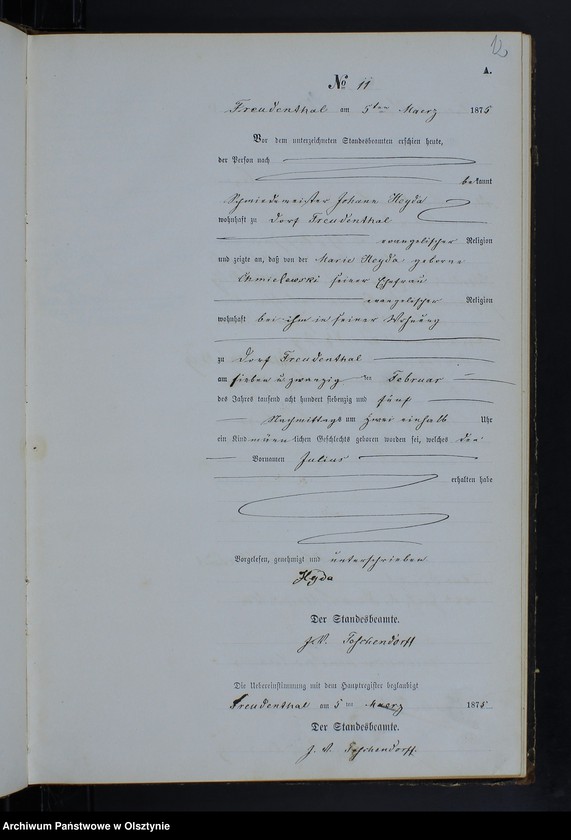 12
A.
No 11
Freudenthal am 5ten Maerz 1875
Vor dem unterzeichneten Standesbeamten erschien heute,
der Person nach
bekannt
Schmiedemeister Johann Heyda
wohnhaft zu Dorf Freudenthal
evangelischer Religion
und zeigte an, daß von der Marie Heyda geborne
Chmielewski seiner Ehefrau
evangelischer Religion
wohnhaft bei ihm in seiner Wohnung
zu Dorf Freudenthal
am sieben u zwanzig ten Februar
des Jahres tausend acht hundert siebenzig und fünf
Nachmittags um zwei einhalb Uhr
ein Kind männlichen Geschlechts geboren worden sei, welches den
Vornamen Julius
erhalten habe
Vorgelesen, genehmigt und unterschrieben
Hyda
Der Standesbeamte.
J. V. Toschendorff
Die Uebereinstimmung mit dem Hauptregister beglaubigt
Freudenthal am 5 ten Maerz 1875
Der Standesbeamte.
J. V. Toschendorff.
Archiwum Państwowe w Olsztynie